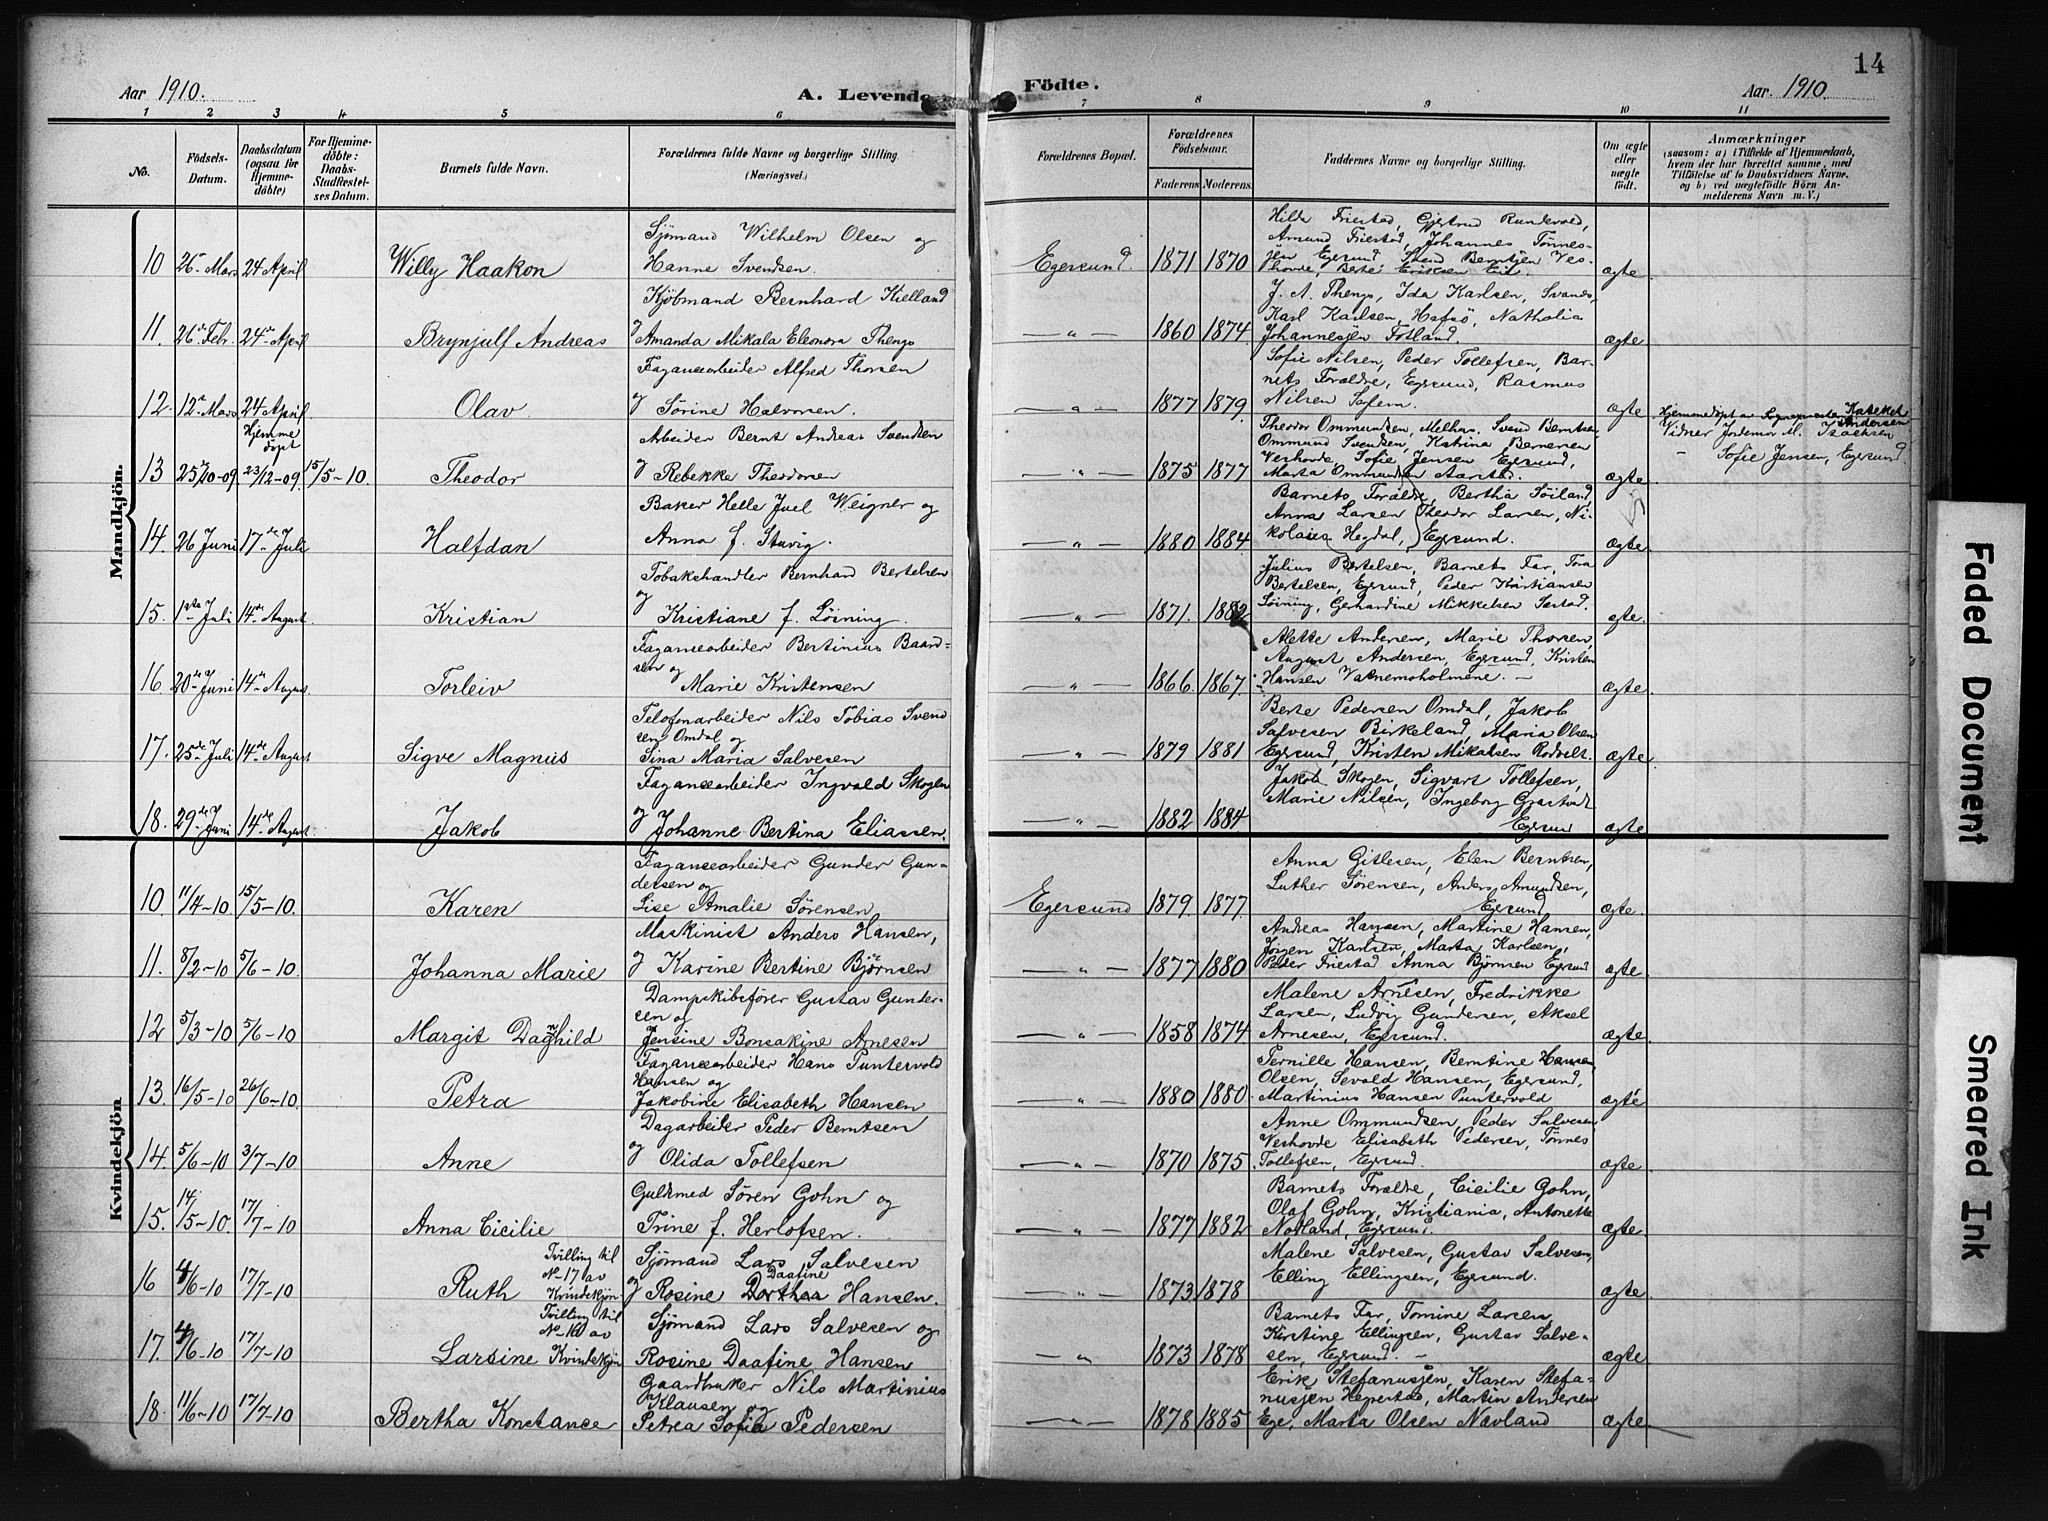 14
Aar 1910.
A. Levende
Födte.
Aar. 1910.
1 2 3 4 5 6 7 8 9 10 11
No.
Födsels-Datum.
Daabsdatum (ogsaa for Hjemme-döbte)
For Hjemme-döbte: Daabs-Stadfæstel-ses Datum.
Barnets fulde Navn.
Forældrenes fulde Navne og borgerlige Stilling. (Næringsvei.)
Forældrenes Bopæl.
Forældrenes Födselsaar.
Faderens. Moderens.
Faddernes Navne og borgerlige Stilling.
Om ægte eller uægte födt.
Anmærkninger
(saasom: a) i Tilfælde af Hjemmedaab, hvem der har forrettet samme, med Tilföielse af to Daabsvidners Navne. og b) ved uægtefödte Börn An-melderens Navn m. V.)
Mandkjön.
Sjömand Wilhelm Olsen og
Hanne Svendsen.
10 26 Mars 24 April Willy Haakon
Egersund. 1871 1870
Hilda Friestad, Gjertrud Rundevold,
Amund Friestad, Johannes Tönnes-
jen Egersund, Svend Berntsen Ves-
hovde, Berte Eriksen Eie. ægte
Kjöbmand Bernhard Kielland
og Amanda Mikala Eleonora Thengs
11. 26de Febr. 24de April Brynjulf Andreas
— " — 1860 1874
J. A. Thengs, Ida Karlsen, Svanes,
Karl Karlsen, Hafsö, Nathalia
Johannesjen Fotland. ægte
Fagansearbeider Alfred Thorsen
og Sörine Halvorsen.
12. 12te Mars 24 April Olav
— " — 1877 1879
Sofie Nilsen, Peder Tollefsen, Bar-
nets Forældre, Egersund, Rasmus
Nilsen ægte
Arbeider Bernt Andreas Svendsen
og Rebekke Theodorsen
13 25/10-09 Hjemme döpt 23/12-09. 15/5-10. Theodor
— " — 1875 1877
Theodor Ommundsen, Melhus, Svend Berntsen
Ommund Svendsen, Katrina Bernersen
Veshovde, Sofie Jensen Egersund,
Marta Ommundsen Aarstad. ægte
Hjemmedöpt av Kateket Andersen
Vidner Jordemor M. Isachsen
- Sofie Jensen, Egersund.
Baker Helle Juel Weigner og
Anna f. Stuvig.
14. 26 Juni 17de Juli Halfdan
— " — 1880 1884
Barnets Forældre, Bertha Söiland,
Anna Larsen Theodor Larsen, Ni-
kolaia Hegdal, Egersund. ægte
Tobakshandler Bernhard Bertelsen
og Kristiane f. Löining.
15. 1ste Juli 14de August Kristian
— " — 1871. 1882
Julius Bertelsen, Barnets Far, Tora
Bertelsen, Egersund, Peder Kristiansen
Löining, Gerhardine Mikkelsen ægte
Faganssearbeider Bertinius Baard-
sen og
Marie Kristensen
16 20de Juni 14de August Torleiv
— " — 1866. 1867
Alette Andersen, Marie Thorsen,
August Andersen, Egersund, Kristen
Hansen Varnemoholmene. — ægte
Telofonarbeider Nils Tobias Svend
sen Omdal og
Sina Maria Salvesen
17. 25de Juli 14de August Sigve Magnus
— " — 1879 1881
Berte Pedersen Omdal, Jakob
Salvesen Birkeland, Maria Olsen
Egersund, Kristen Mikalsen Rodvelt. ægte
Faganssearbeider Ingvald Skogen
og Johanne Bertina Eliassen.
18. 29de Juni 14de August Jakob
— " — 1882 1884
Jakob Skogen, Sigvart Tollefsen,
Marie Nilsen, Ingeborg
Egersund ægte
Kvindekjön
Faganssearbeider Gunder Gun-
dersen og
Lise Amalie Sörensen
10. 11/4-10 15/5-10. Karen
Egersund 1879. 1877.
Anna Gitlesen, Elen Berntsen,
Luther Sörensen, Anders Amundsen,
Egersund ægte.
Maskinist Anders Hansen,
og Karine Bertine Björnsen
11. 8/2-10 5/6-10. Johanna Marie
— " — 1877 1880
Andreas Hansen, Martine Hansen,
Jörgen Karlsen, Marta Karlsen,
Peder Friestad Anna Björnsen Egersund ægte
Dampskibsförer Gustav Gunder-
sen og
Jensine Bonsakine Arnesen
12 5/3-10 5/6-10 Margit Dagnhild
— " — 1858 1874
Malene Arnesen, Fredrikke
Larsen, Ludvig Gundersen, Aksel
Arnesen, Egersund. ægte
Faganssearbeider Hans Puntervold
Hansen og
Jakobine Elisabeth Hansen
13. 16/5-10 26/6-10. Petra
— " — 1880 1880
Pernille Hansen, Berntine Hansen
Olsen, Sevald Hansen, Egersund,
Martinius Hansen Puntervold ægte
Dagarbeider Peder Berntsen
og Olida Tollefsen
14. 5/6-10 3/7-10 Anne
— " — 1870 1875
Anne Ommundsen, Peder Salvesen
Veshovde Elisabeth Pedersen, Tönnes
Tollefsen, Egersund. ægte
Guldsmed Sören Gohn og
Trine f. Herlofsen.
15. 14/5-10. 17/7-10 Anna Cicilie
— " — 1877 1882
Barnets Forældre, Cicilie Gohn,
Olaf Gohn, Kristiania, Antonette
Notland, Egersund. ægte
Sjömand Lars Salvesen
og Rosine Dorthea Daafine Hansen.
16 4/6-10 17/7-10 Ruth Tvilling til No 17 av Kvindekjön
— " — 1873 1878
Malene Salvesen, Gustav Salvesen,
Elling Ellingsen, Egersund. ægte
Sjömand Lars Salvesen og
Rosine Daafine Hansen
17. 4/6-10 17/7-10 Larsine Tvilling til No 16 av Kvindekjön
— " — 1873 1878
Barnets Far, Tomine Larsen,
Kirstine Ellingsen, Gustav Salve-
sen, Egersund. — ægte
Gaardbruker Nils Martinius
Klausen og
Petrea Sofia Pedersen
18. 11/6-10 17/7-10 Bertha Konstance
— " — 1878 1885
Erik Stefanusjen, Karen Stefa-
nusjen Hegrestad, Martin Andersen
Ege, Marta Olsen Navland ægte
Faded Document
Smeared Ink